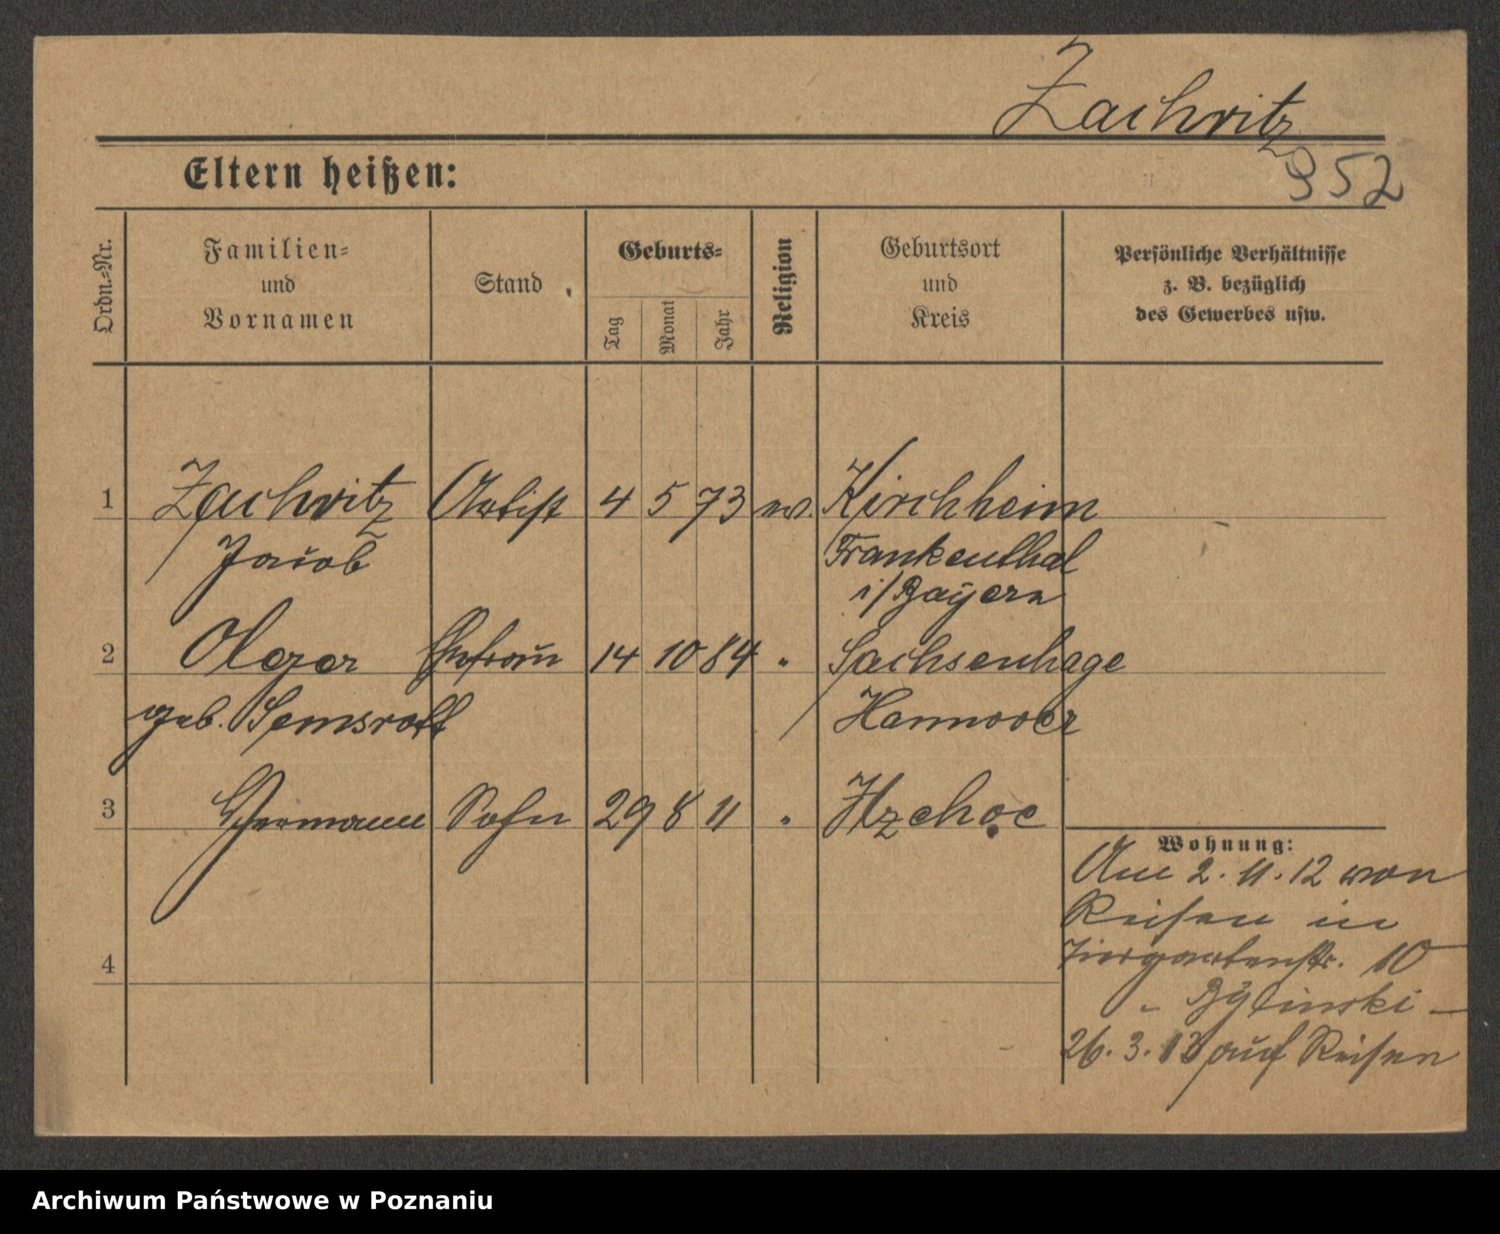 Zachritz
952
Eltern heißen:
Ordn.-Nr.
Familien-
und
Vornamen
Stand
Geburts-
Tag
Monat
Jahr
Religion
Geburtsort
und
Kreis
Persönliche Verhältnisse
z. B. bezüglich
des Gewerbes usw.
1 Zachritz Artist 4 5 73 ev. Kirchheim
Jacob Frankenthal
i/Bayern
2 Olga Ehefrau 14 10 84 " Sachsenhage
geb. Semsrott Hannover
3 Hermann Sohn 29 8 11 " Itzehoe
Wohnung:
Am 2. 11. 12 von
Reisen in
Tiergartenstr. 10
- Bylinski -
26. 3. 13 auf Reisen
4
Archiwum Państwowe w Poznaniu